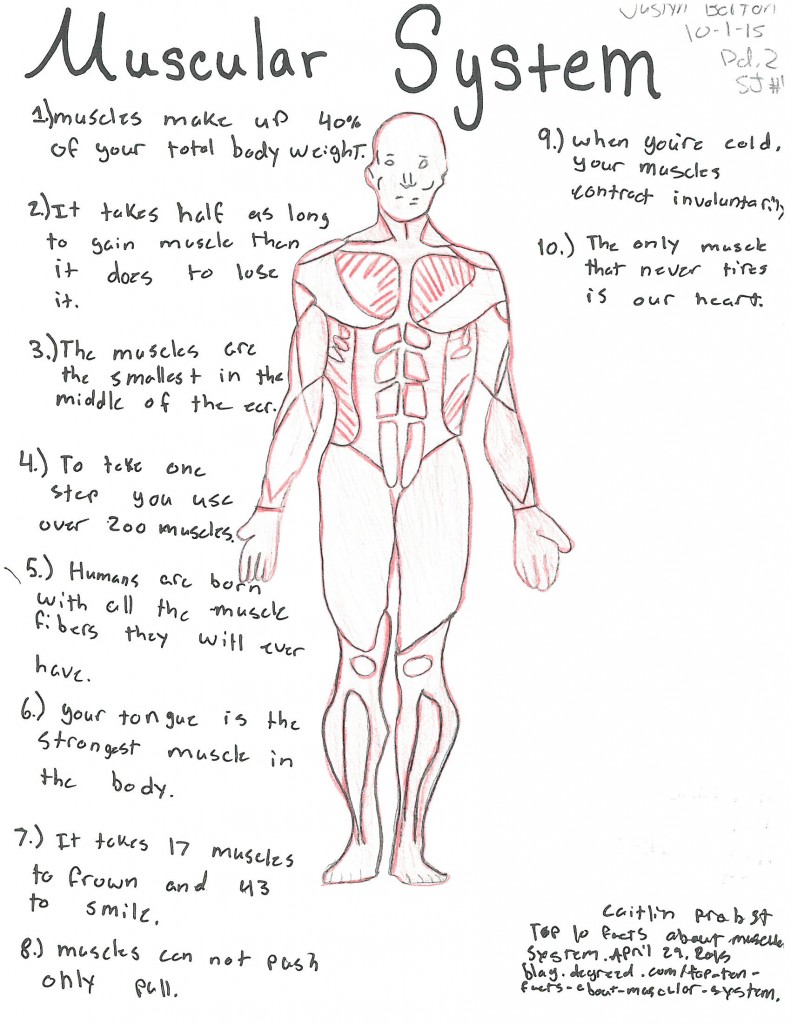 Muscular System
10-1-15
Pd. 2
SJ #1
1.) muscles make up 40%
of your total body weight.
2.) It takes half as long
to gain muscle than
it does to lose
it.
3.) The muscles are
the smallest in the
middle of the ear.
4.) To take one
step you use
over 200 muscles.
5.) Humans are born
with all the muscle
fibers they will ever
have.
6.) your tongue is the
strongest muscle in
the body.
7.) It takes 17 muscles
to frown and 43
to smile.
8.) muscles can not push
only pull.
9.) when you're cold,
your muscles
contract involuntarily
10.) The only muscle
that never tires
is our heart.
Caitlin Probst
Top 10 facts about muscle
System. April 29, 2015
blog.degreed.com/top-ten-
facts-about-muscular-system.